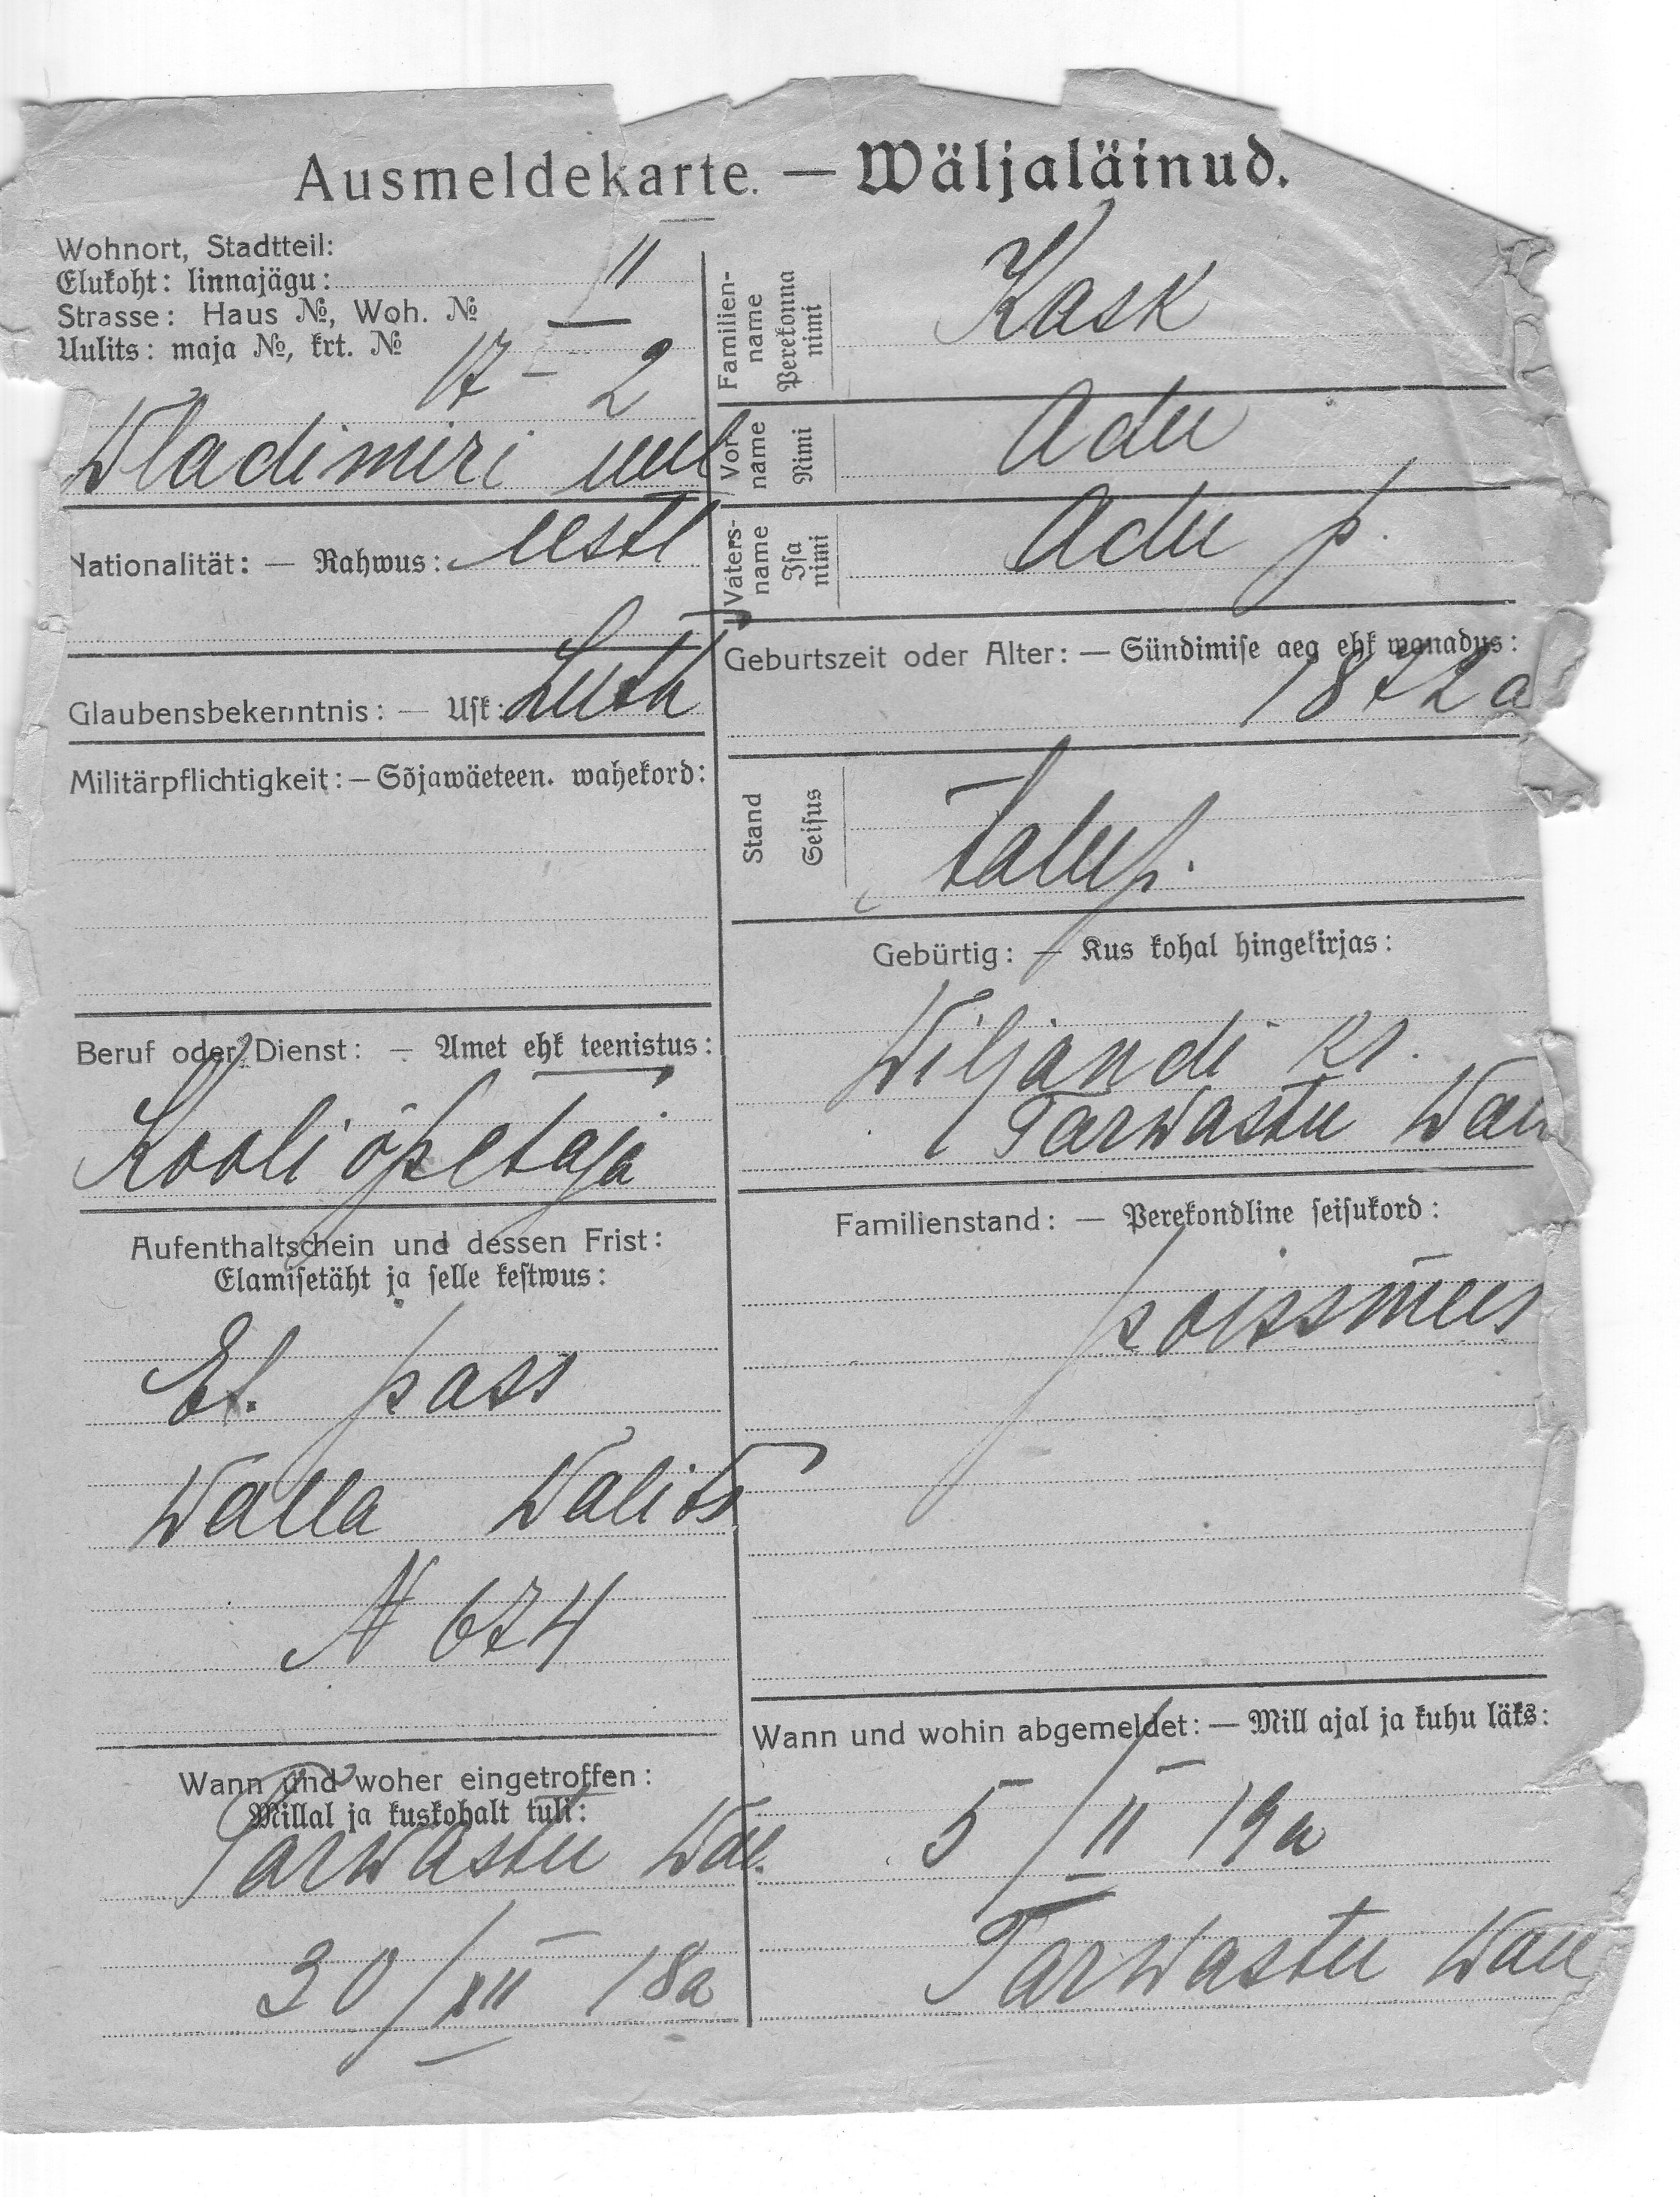 Ausmeldekarte. — Wäljaläinud.
Wohnort, Stadtteil:
Elukoht: linnajägu: II
Strasse: Haus №, Woh. №
Uulits: maja №, krt. №
17 – 2
Wladimiri uul
Nationalität: — Rahwus: eesti
Glaubensbekenntnis: — Usk: Luth
Militärpflichtigkeit: — Sõjawäeteen. wahekord:
Beruf oder Dienst: — Amet ehk teenistus:
Kooliõpetaja
Aufenthaltschein und dessen Frist:
Elamisetäht ja selle kestwus:
El. pass
Walla Walits
N 674
Wann und woher eingetroffen:
Millal ja kuskohalt tuli:
Tarwastu Wal.
30/XII 18a
Familien-
name
Perekonna
nimi
Kask
Vor-
name
Nimi
Adu
Vaters-
name
Isa
nimi
Adu p.
Geburtszeit oder Alter: — Sündimise aeg ehk wanadus:
1872 a
Stand
Seisus
talup.
Gebürtig: — Kus kohal hingekirjas:
Wiljandi kr.
Tarwastu
Familienstand: — Perekondline seisukord:
poissmees
Wann und wohin abgemeldet: — Mill ajal ja kuhu läks:
5/II 19a
Tarwastu